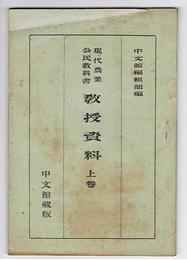 中文館編輯部編
現代農業
公民教科書
教授資料 上卷
中文館藏版